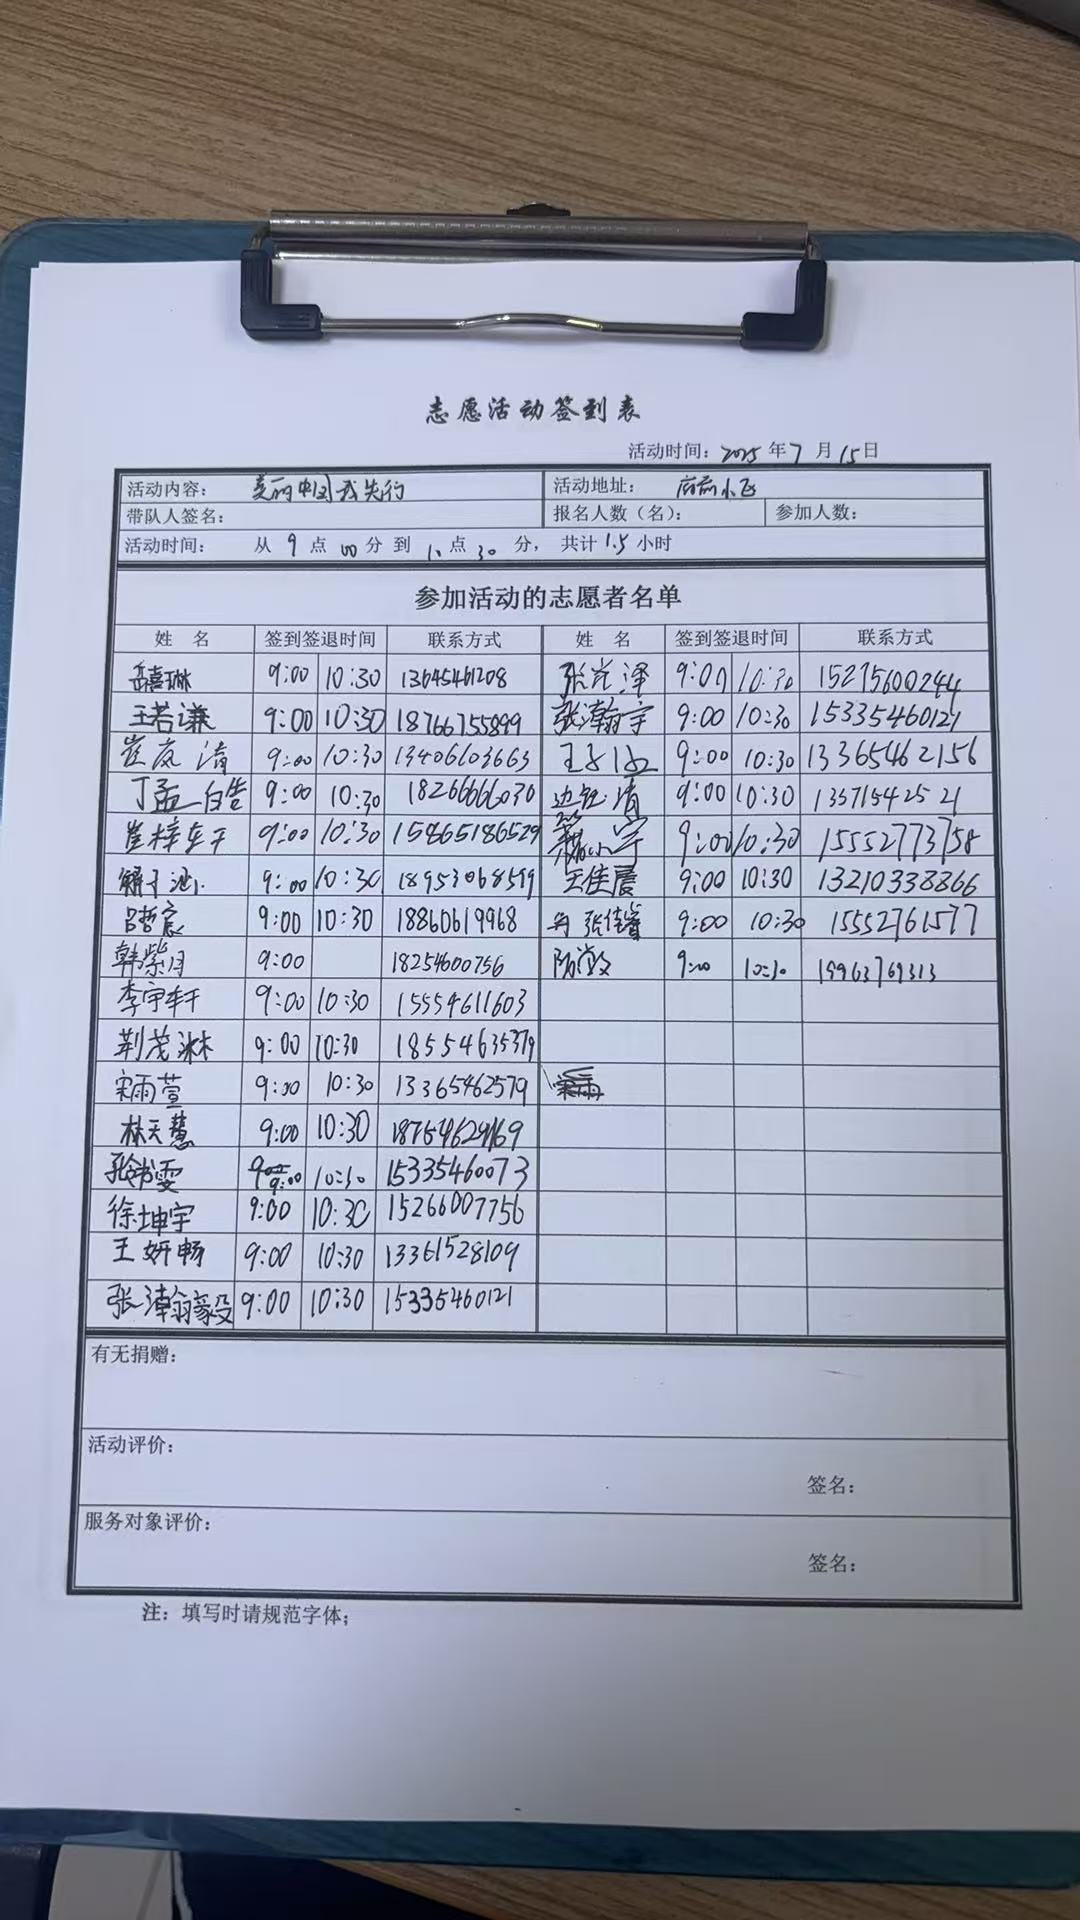 志愿活动签到表
活动时间：2025年7月15日
活动内容： 美丽中国我先行 活动地址： 府前小区
带队人签名： 报名人数（名）： 参加人数：
活动时间： 从9点00分到10点30分，共计1.5小时
参加活动的志愿者名单
姓 名 签到签退时间 联系方式 姓 名 签到签退时间 联系方式
岳禧琳 9:00 10:30 13645461208 张 泽 9:00 10:30 15275600244
王若谦 9:00 10:30 18766755899 张瀚宇 9:00 10:30 15335460121
崔岚清 9:00 10:30 13406103663 9:00 10:30 13365462156
丁孟 9:00 10:30 18266666030 边钰清 9:00 10:30 13571542521
崔梓轩 9:00 10:30 15865186529 9:00 10:30 15552773758
解子 9:00 10:30 18953068599 王佳晨 9:00 10:30 13210338866
吕哲宸 9:00 10:30 18860619968 张佳睿 9:00 10:30 15552761577
韩紫月 9:00 18254600756 9:00 10:30 19963769313
李宇轩 9:00 10:30 15554611603
荆茂淋 9:00 10:30 18554635379
宋雨萱 9:00 10:30 13365462579
林天慧 9:00 10:30 18754629169
张书雯 9:00 10:30 15335460073
徐坤宇 9:00 10:30 15266007756
王妍畅 9:00 10:30 13361528109
张瀚毅 9:00 10:30 15335460121
有无捐赠：
活动评价：
签名：
服务对象评价：
签名：
注：填写时请规范字体；